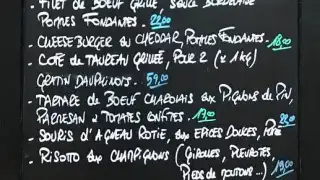 - FILET de BOEUF GRILLÉ, SAUCE BORDELAISE
POMMES FONDANTES. 22,00
- CHEESEBURGER au CHEDDAR, POMMES FONDANTES. 18,00
- COTE de TAUREAU GRILLÉE, POUR 2 (± 1 KG)
GRATIN DAUPHINOIS. 59,00
- TARTARE de BOEUF CHAROLAIS aux PIGNONS de PIN,
PARMESAN & TOMATES CONFITES. 17,00
- SOURIS d'AGNEAU ROTIE, aux EPICES DOUCES, 22,00
- RISOTTO aux CHAMPIGNONS (GIROLLES, PLEUROTES,
PIEDS de MOUTONS...) 19,00